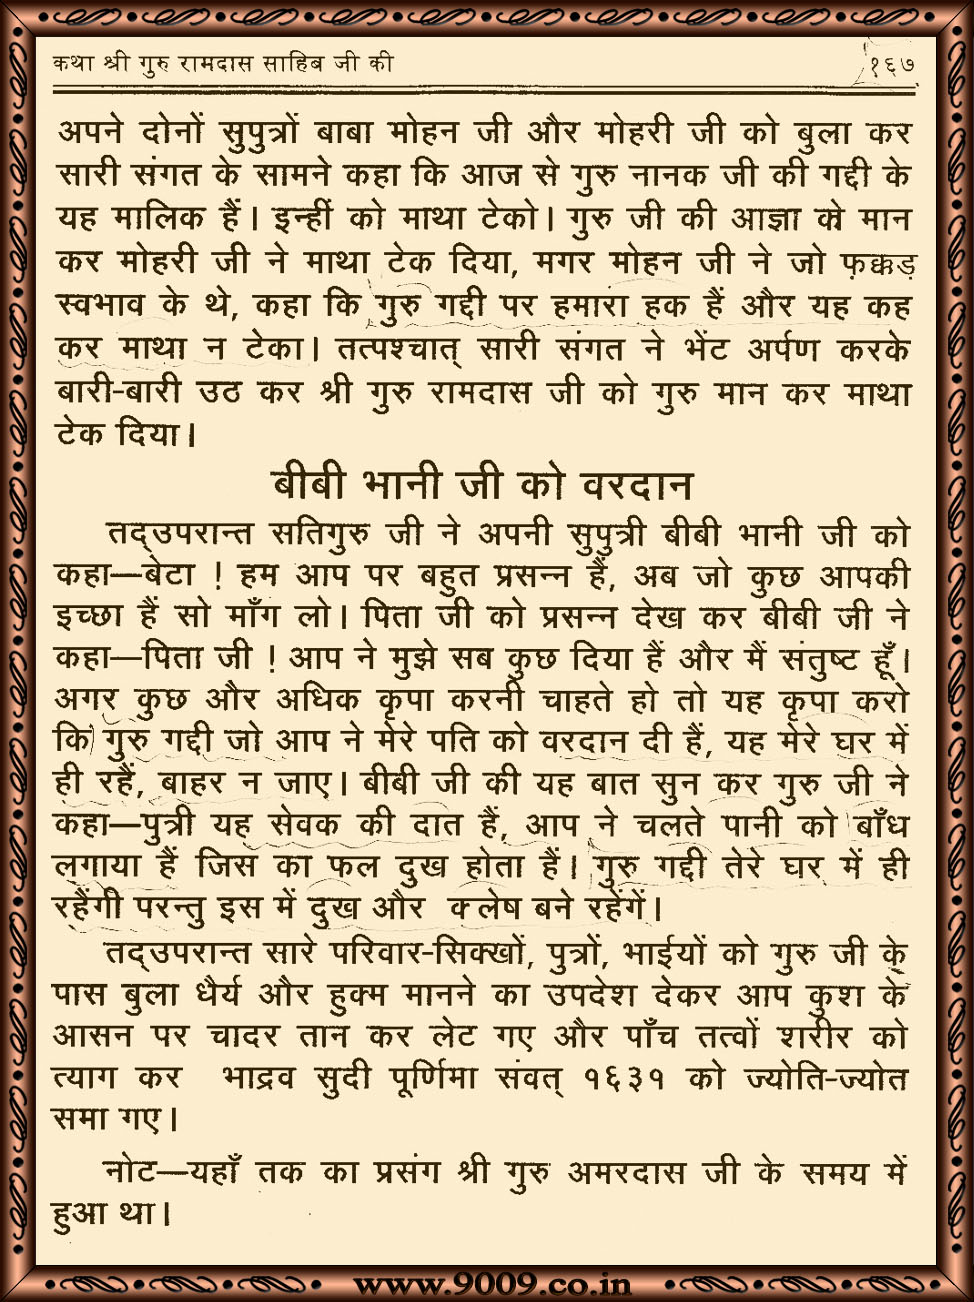 कथा श्री गुरु रामदास साहिब जी की १६७
अपने दोनों सुपुत्रों बाबा मोहन जी और मोहरी जी को बुला कर
सारी संगत के सामने कहा कि आज से गुरु नानक जी की गद्दी के
यह मालिक हैं। इन्हीं को माथा टेको। गुरु जी की आज्ञा को मान
कर मोहरी जी ने माथा टेक दिया, मगर मोहन जी ने जो फ़क्कड़
स्वभाव के थे, कहा कि गुरु गद्दी पर हमारा हक हैं और यह कह
कर माथा न टेका। तत्पश्चात् सारी संगत ने भेंट अर्पण करके
बारी-बारी उठ कर श्री गुरु रामदास जी को गुरु मान कर माथा
टेक दिया।
बीबी भानी जी को वरदान
तद्उपरान्त सतिगुरु जी ने अपनी सुपुत्री बीबी भानी जी को
कहा—बेटा ! हम आप पर बहुत प्रसन्न हैं, अब जो कुछ आपकी
इच्छा हैं सो माँग लो। पिता जी को प्रसन्न देख कर बीबी जी ने
कहा—पिता जी ! आप ने मुझे सब कुछ दिया हैं और मैं संतुष्ट हूँ।
अगर कुछ और अधिक कृपा करनी चाहते हो तो यह कृपा करो
कि गुरु गद्दी जो आप ने मेरे पति को वरदान दी हैं, यह मेरे घर में
ही रहैं, बाहर न जाए। बीबी जी की यह बात सुन कर गुरु जी ने
कहा—पुत्री यह सेवक की दात हैं, आप ने चलते पानी को बाँध
लगाया हैं जिस का फल दुख होता हैं। गुरु गद्दी तेरे घर में ही
रहैंगी परन्तु इस में दुख और क्लेष बने रहेंगें।
तद्उपरान्त सारे परिवार-सिक्खों, पुत्रों, भाईयों को गुरु जी के
पास बुला धैर्य और हुक्म मानने का उपदेश देकर आप कुश के
आसन पर चादर तान कर लेट गए और पाँच तत्वों शरीर को
त्याग कर भाद्रव सुदी पूर्णिमा संवत् १६३१ को ज्योति-ज्योत
समा गए।
नोट—यहाँ तक का प्रसंग श्री गुरु अमरदास जी के समय में
हुआ था।
www.9009.co.in